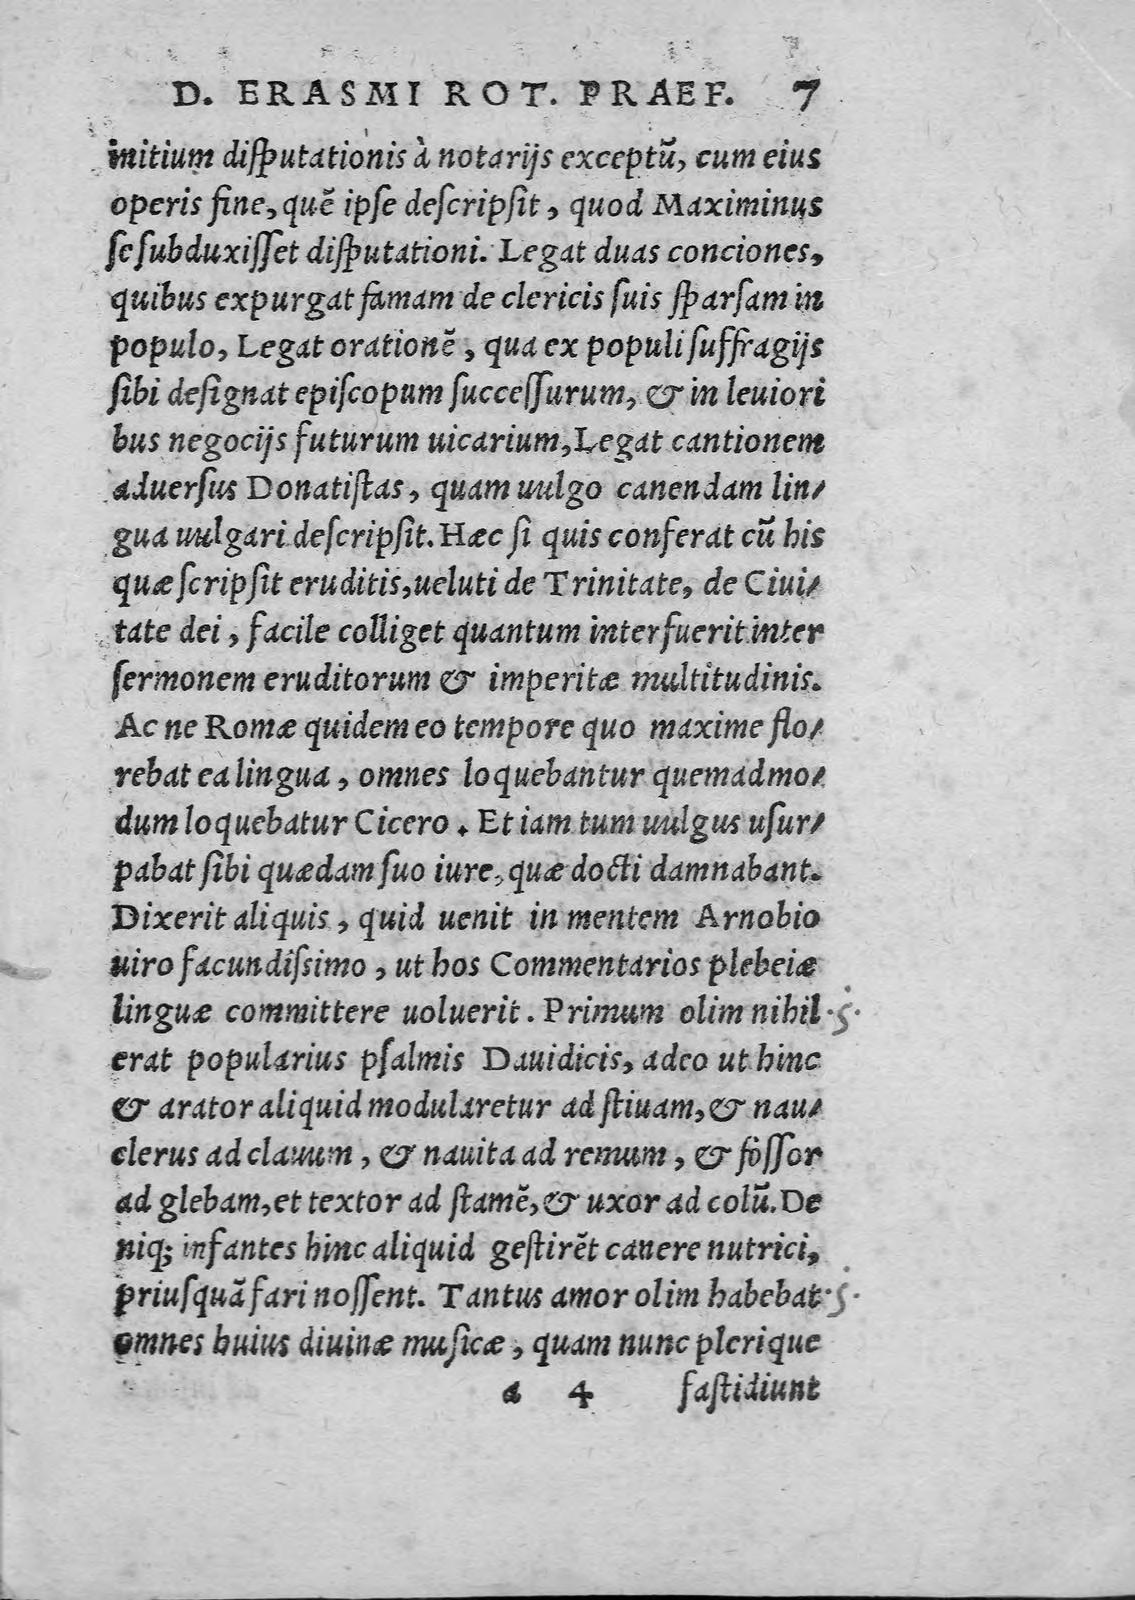 D. ERASMI ROT. PRAEF. 7
initium diſputationis à notarijs exceptũ, cum eius
operis fine, quẽ ipſe deſcripſit, quod Maximinus
ſe ſubduxiſſet diſputationi. Legat duas conciones,
quibus expurgat famam de clericis ſuis ſparſam in
populo, Legat orationẽ, qua ex populi ſuffragijs
ſibi deſignat epiſcopum ſucceſſurum, & in leuiori
bus negocijs futurum uicarium, Legat cantionem
aduerſus Donatiſtas, quam uulgo canendam lin-
gua uulgari deſcripſit. Hæc ſi quis conferat cũ his
quæ ſcripſit eruditis, ueluti de Trinitate, de Ciui-
tate dei, facile colliget quantum interfuerit inter
ſermonem eruditorum & imperitæ multitudinis.
Ac ne Romæ quidem eo tempore quo maxime flo-
rebat ea lingua, omnes loquebantur quemadmo-
dum loquebatur Cicero. Et iam tum uulgus uſur-
pabat ſibi quædam ſuo iure, quæ docti damnabant.
Dixerit aliquis, quid uenit in mentem Arnobio
uiro facundiſsimo, ut hos Commentarios plebeiæ
linguæ committere uoluerit. Primum olim nihil
erat popularius pſalmis Dauidicis, adeo ut hinc
& arator aliquid modularetur ad ſtiuam, & nau-
clerus ad clauum, & nauita ad remum, & foſſor
ad glebam, et textor ad ſtamẽ, & uxor ad colũ. De
niq; infantes hinc aliquid geſtirẽt canere nutrici,
priuſquã fari noſſent. Tantus amor olim habebat
omnes huius diuinæ muſicæ, quam nunc plerique
a 4 faſtidiunt